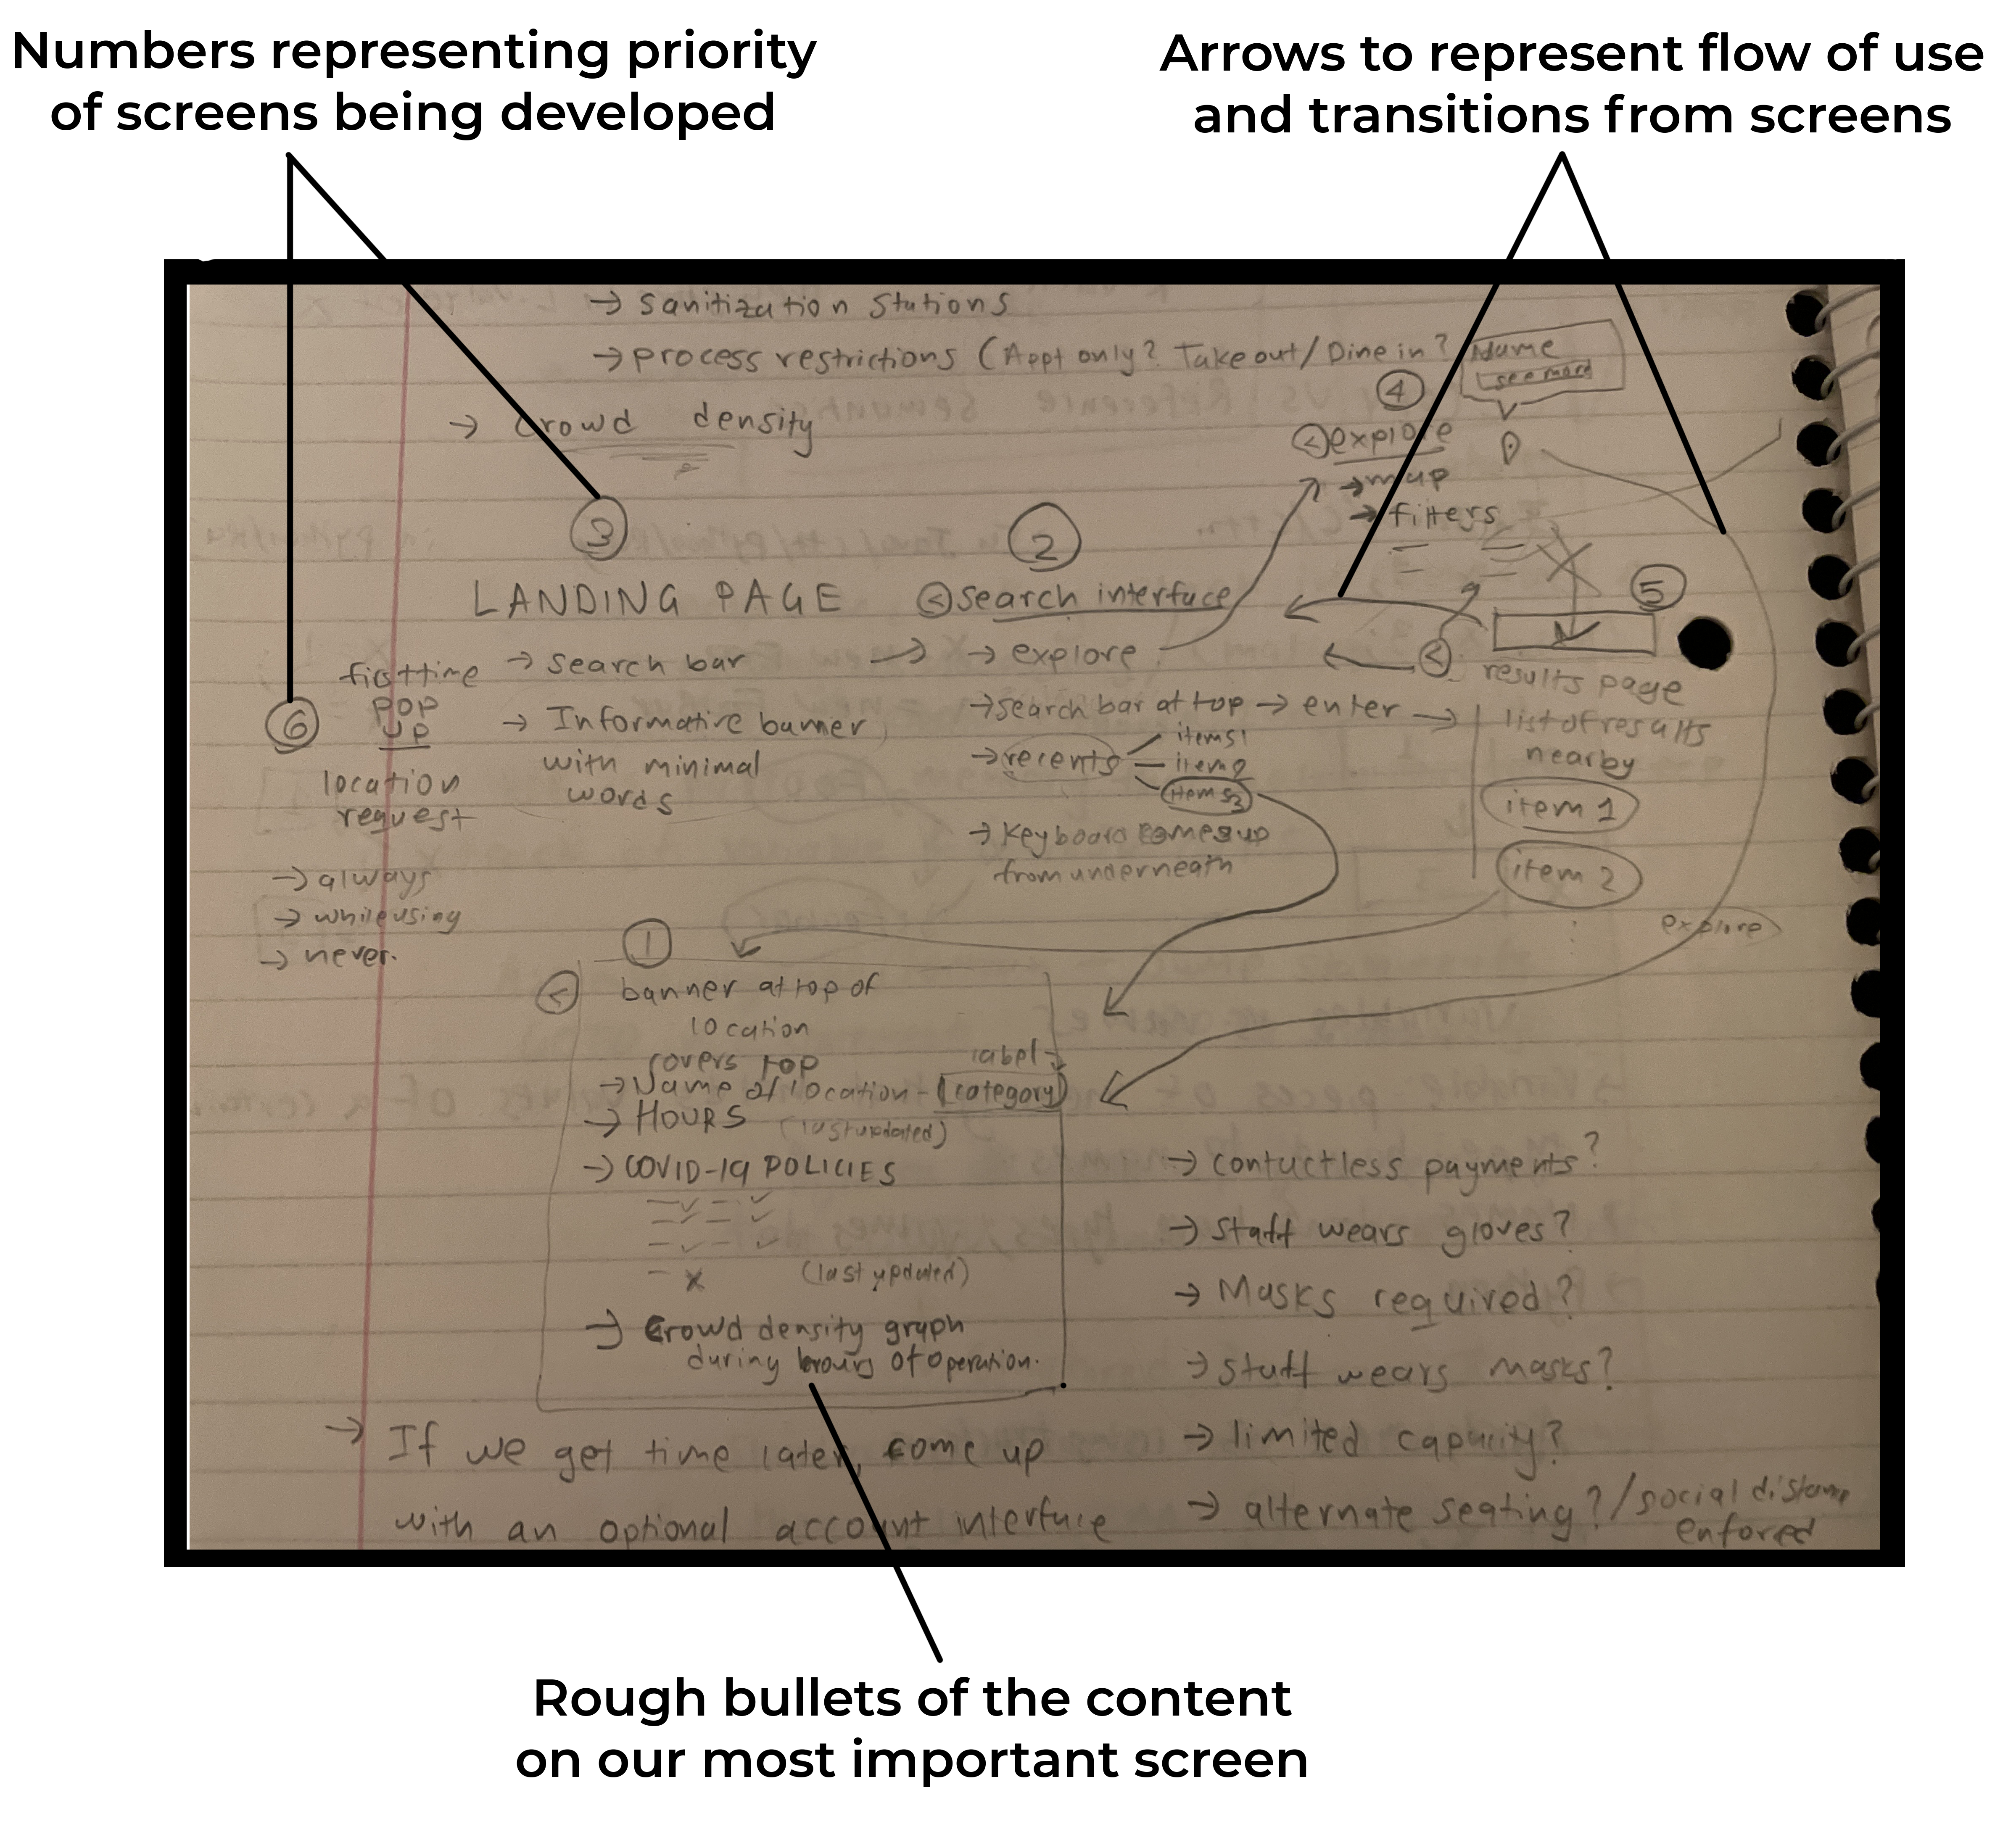 Numbers representing priority
of screens being developed
Arrows to represent flow of use
and transitions from screens
→ Sanitization Stations
→ process restrictions (Appt only? Takeout/Dine in?
Name
see more
→ Crowd density
4
<explore
→ map
→ filters
3
LANDING PAGE
→ search bar
→ Informative banner
with minimal
words
2
< search interface
→ → explore
→ search bar at top → enter →
→ recents
items1
item2
items3
→ Keyboard comes up
from underneath
5
<
results page
list of results
nearby
item 1
item 2
explore
6
first time
POP
UP
location
request
→ always
→ while using
→ never.
1
<
banner at top of
location
covers top
label →
→ Name of location - (category)
→ HOURS (last updated)
→ COVID-19 POLICIES
(last updated)
→ Crowd density graph
during hours of operation.
→ If we get time later, come up
with an optional account interface
→ contactless payments?
→ Staff wears gloves?
→ Masks required?
→ Staff wears masks?
→ limited capacity?
→ alternate seating?/social distance
enforced
Rough bullets of the content
on our most important screen